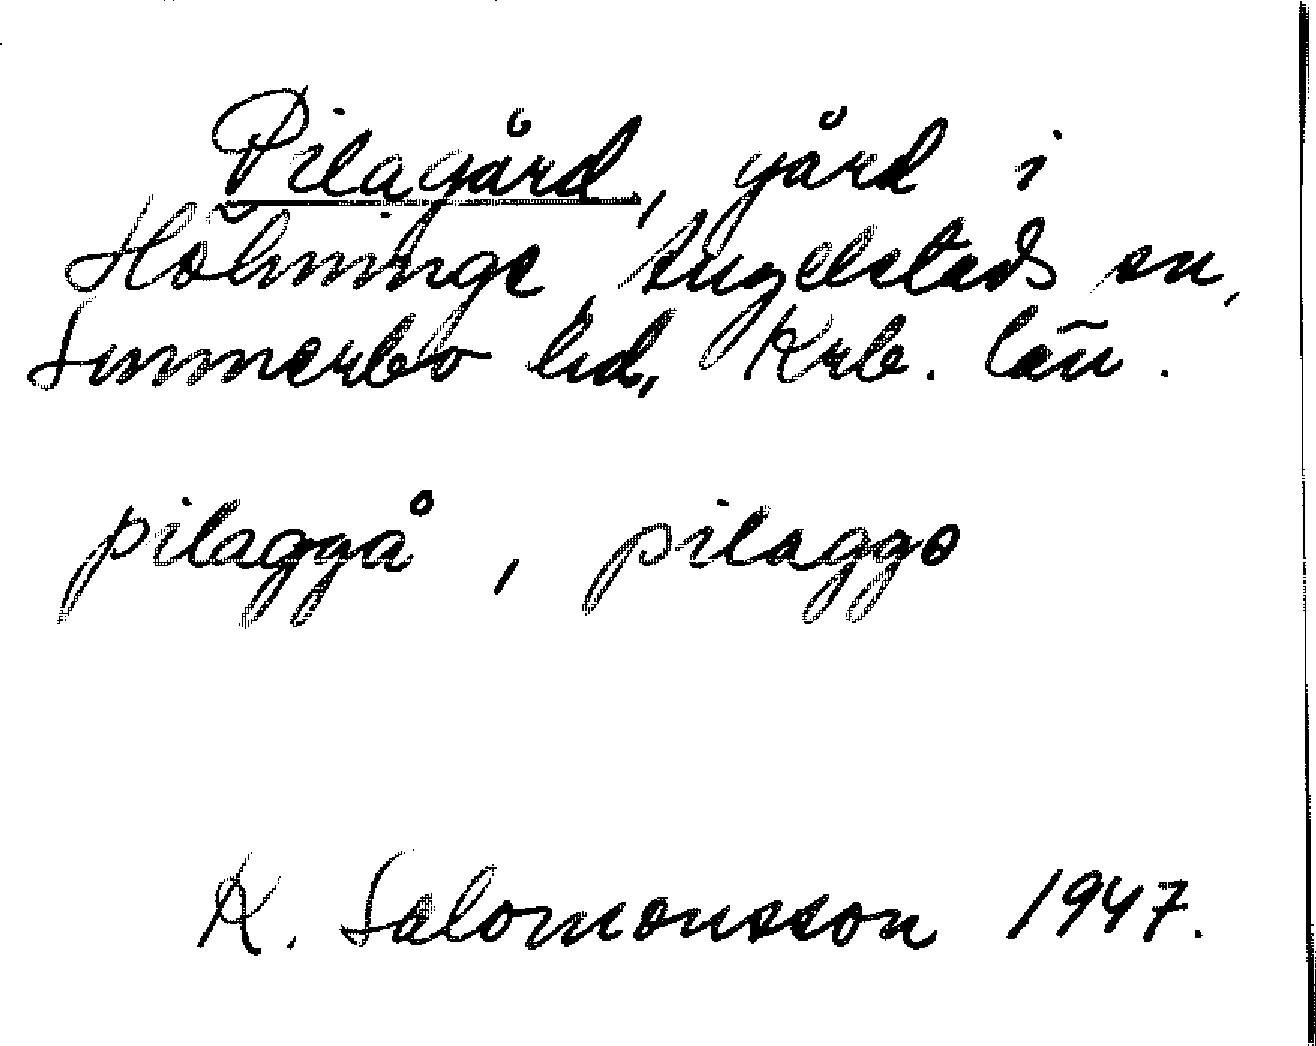 Pilagård, gård i
Hölminge, Angelstads sn,
Sunnerbo hd, Krb. län.
pilaggå, pilaggo
K. Salomonsson 1947.